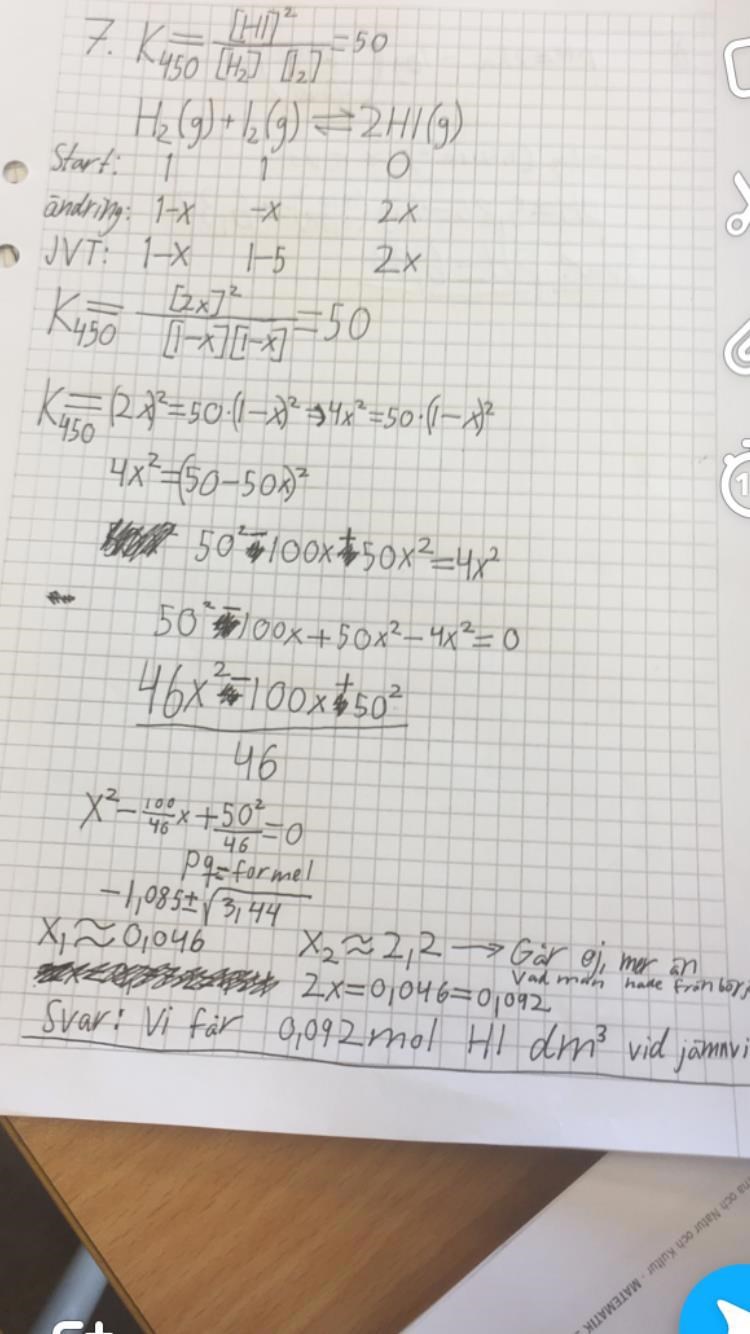 7. K₄₅₀ = [HI]² / [H₂] [I₂] = 50
H₂(g) + I₂(g) ⇌ 2HI(g)
Start: 1 1 0
ändring: 1-x -x 2x
JVT: 1-x 1-5 2x
K₄₅₀ = [2x]² / [1-x][1-x] = 50
K₄₅₀ = (2x)² = 50·(1-x)² → 4x² = 50·(1-x)²
4x² = (50-50x)²
50² - 100x + 50x² = 4x²
50² - 100x + 50x² - 4x² = 0
46x² - 100x + 50²
46
x² - 100/46 x + 50²/46 = 0
pq=formel
-1,085 ± √3,44
x₁ ≈ 0,046 x₂ ≈ 2,2 → Går ej, mer än
vad man hade från
2x = 0,046 = 0,092
Svar: Vi får 0,092 mol HI dm³ vid
- MATEMATIK
och Natur och Kultur
1